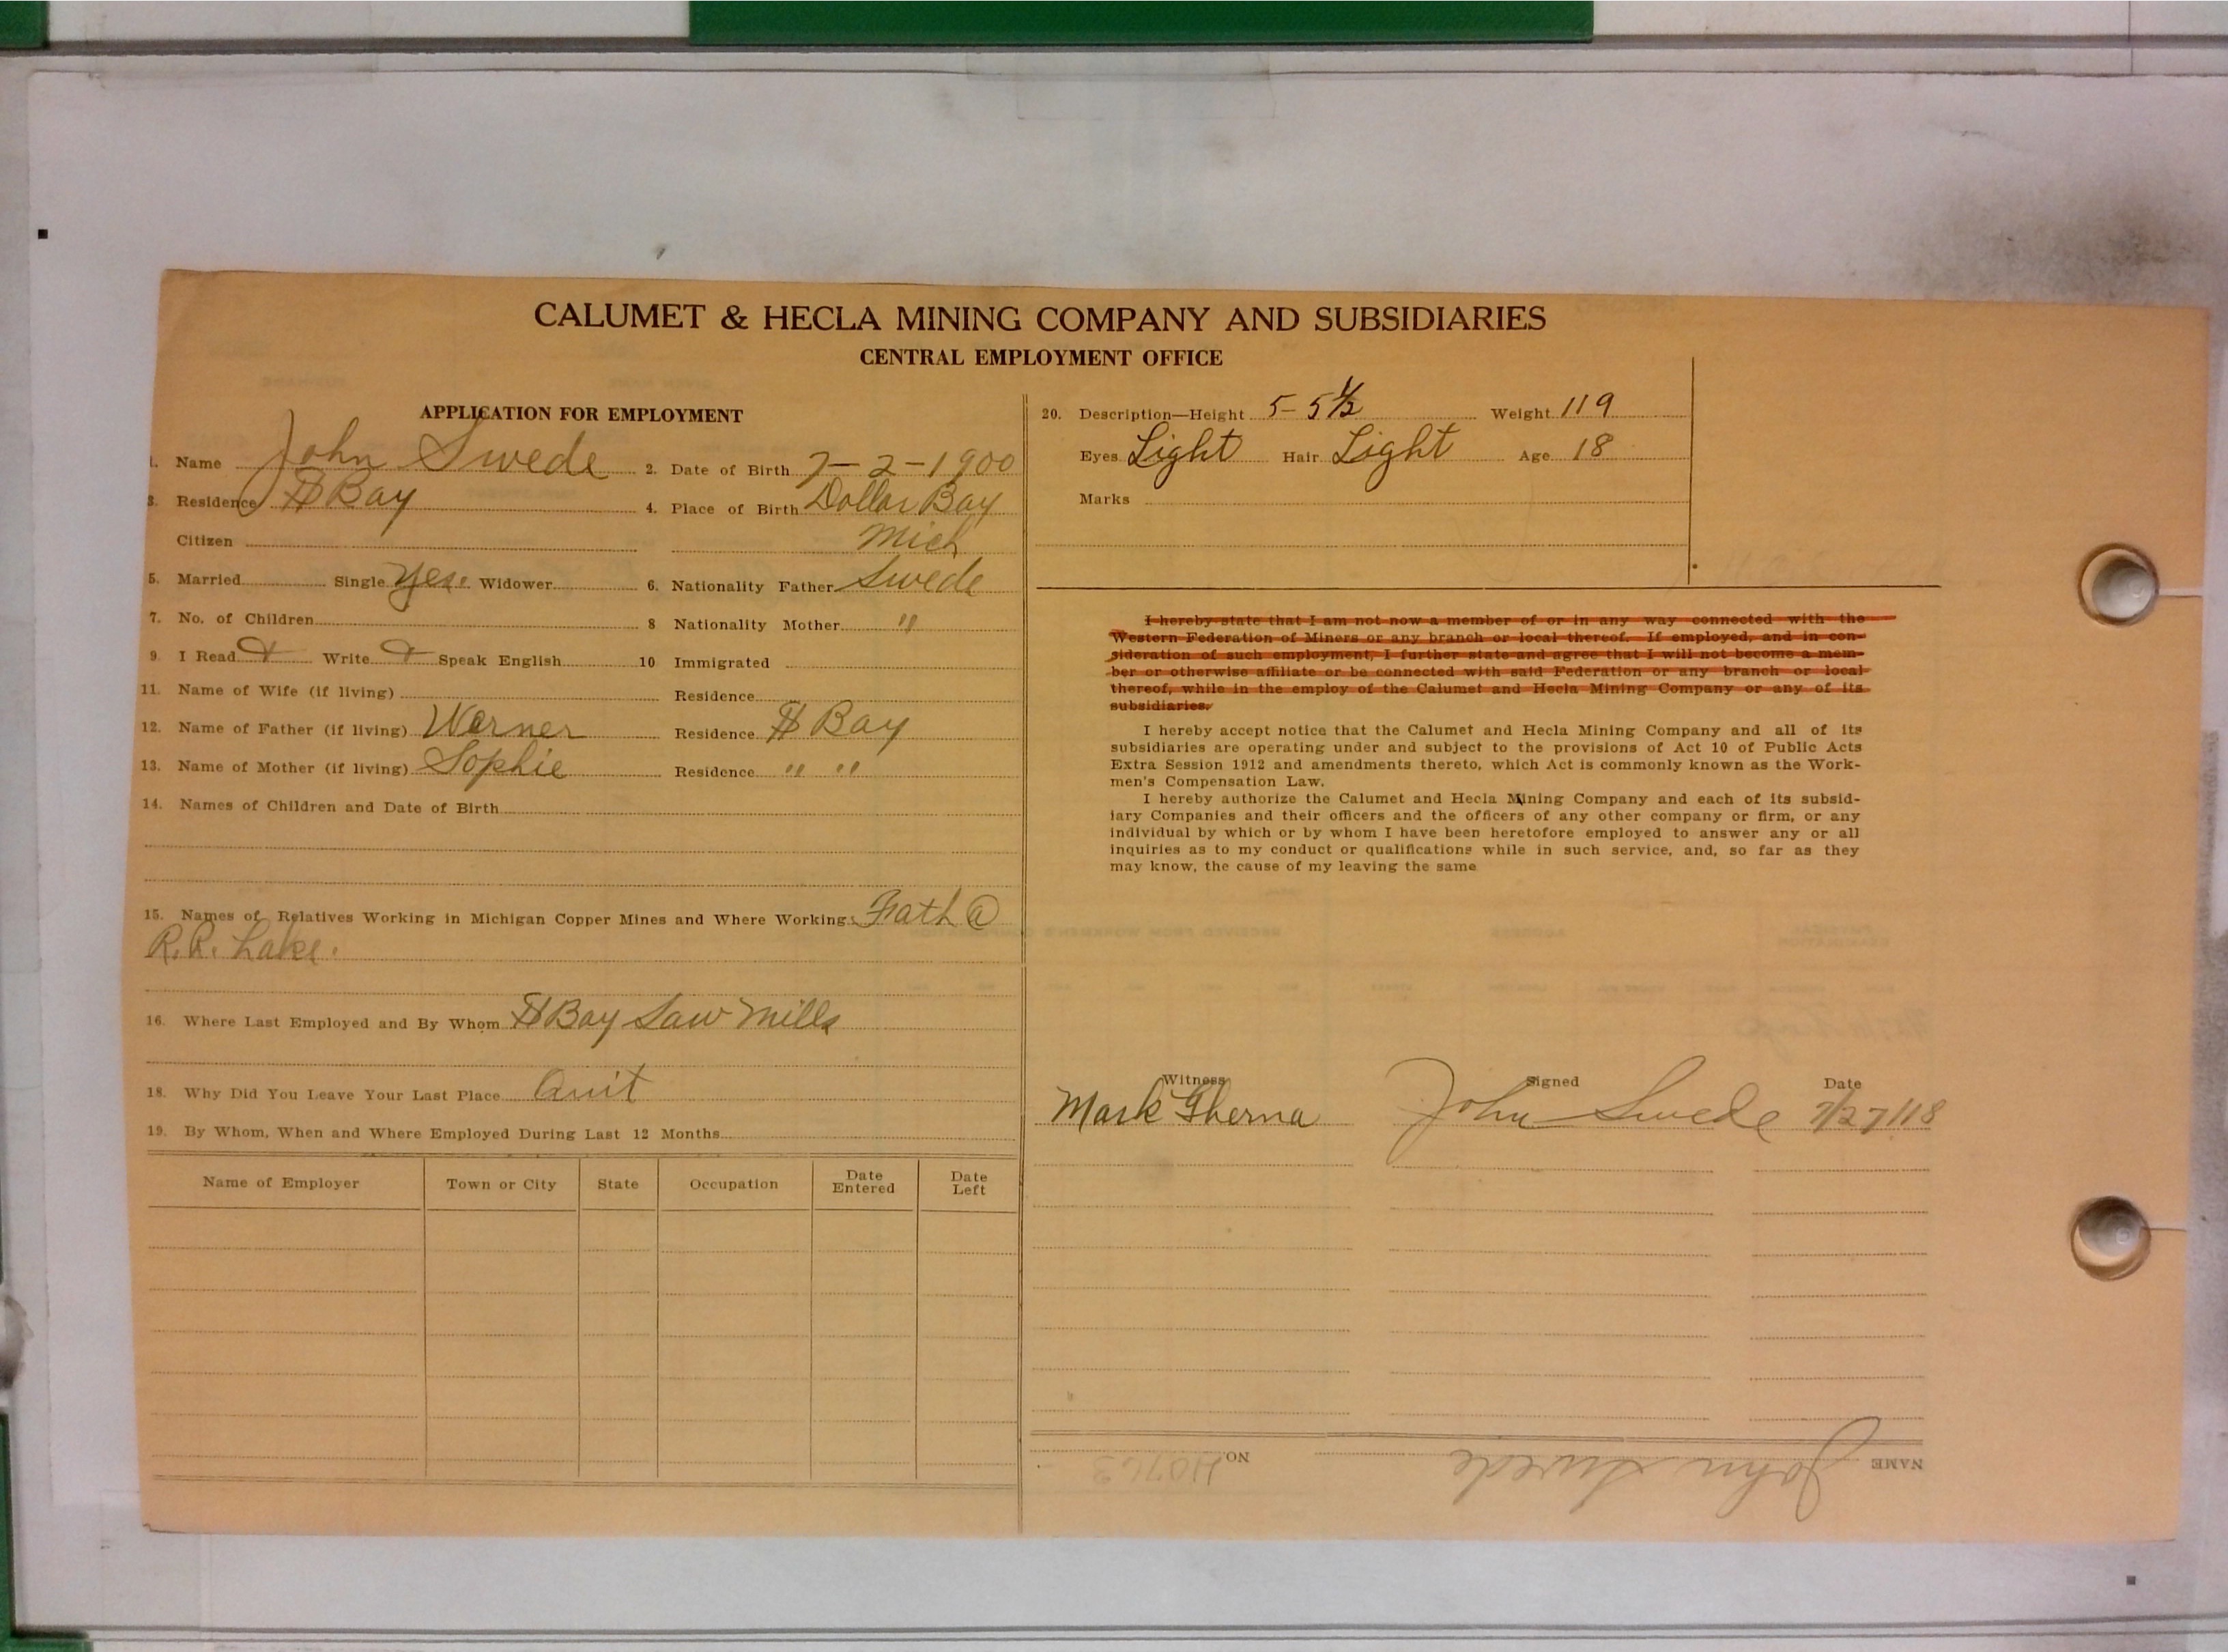 CALUMET & HECLA MINING COMPANY AND SUBSIDIARIES
CENTRAL EMPLOYMENT OFFICE
APPLICATION FOR EMPLOYMENT
1. Name John Swede 2. Date of Birth 7-2-1900
3. Residence $ Bay 4. Place of Birth Dollar Bay
Citizen Mich
5. Married Single Yes. Widower 6. Nationality Father Swede
7. No. of Children 8 Nationality Mother "
9. I Read Write Speak English 10 Immigrated
11. Name of Wife (if living) Residence
12. Name of Father (if living) Werner Residence $ Bay
13. Name of Mother (if living) Sophie Residence " "
14. Names of Children and Date of Birth
15. Names of Relatives Working in Michigan Copper Mines and Where Working Fath @
R.R. Lake.
16. Where Last Employed and By Whom $ Bay Saw Mills
18. Why Did You Leave Your Last Place Quit
19. By Whom, When and Where Employed During Last 12 Months
Name of Employer Town or City State Occupation Date Entered Date Left
20. Description—Height 5-5½ Weight 119
Eyes Light Hair Light Age 18
Marks
I hereby state that I am not now a member of or in any way connected with the
Western Federation of Miners or any branch or local thereof. If employed, and in con-
sideration of such employment, I further state and agree that I will not become a mem-
ber or otherwise affiliate or be connected with said Federation or any branch or local
thereof, while in the employ of the Calumet and Hecla Mining Company or any of its
subsidiaries.
I hereby accept notice that the Calumet and Hecla Mining Company and all of its
subsidiaries are operating under and subject to the provisions of Act 10 of Public Acts
Extra Session 1912 and amendments thereto, which Act is commonly known as the Work-
men's Compensation Law.
I hereby authorize the Calumet and Hecla Mining Company and each of its subsid-
iary Companies and their officers and the officers of any other company or firm, or any
individual by which or by whom I have been heretofore employed to answer any or all
inquiries as to my conduct or qualifications while in such service, and, so far as they
may know, the cause of my leaving the same
Witness Signed Date
Mark Gherna John Swede 7/27/18
NAME John Swede NO.